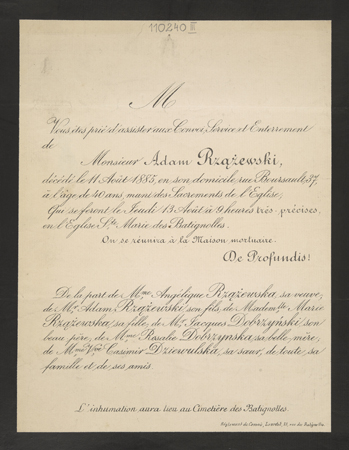 110240 III
M
Vous êtes prié d'assister aux Convoi, Service et Enterrement
de
Monsieur Adam Rzążewski,
décédé, le 11 Août 1885, en son domicile, rue Boursault, 37,
à l'âge de 40 ans, muni des Sacrements de l'Eglise;
Qui se feront le Jeudi 13 Août à 9 heures très précises,
en l'Eglise Ste Marie des Batignolles.
On se réunira à la Maison mortuaire.
De Profundis!
De la part de Mme Angélique Rzążewska, sa veuve;
de Mr Adam Rzążewski son fils, de Madelle Marie
Rzążewska, sa fille, de Mr Jacques Dobrzyński, son
beau père, de Mme Rosalie Dobrzynska, sa belle, mère,
de Mme Vve Casimir Dziewulska, sa sœur, de toute, sa
famille et de ses amis.
L'inhumation aura lieu au Cimetière des Batignolles.
Règlement de Convoi,